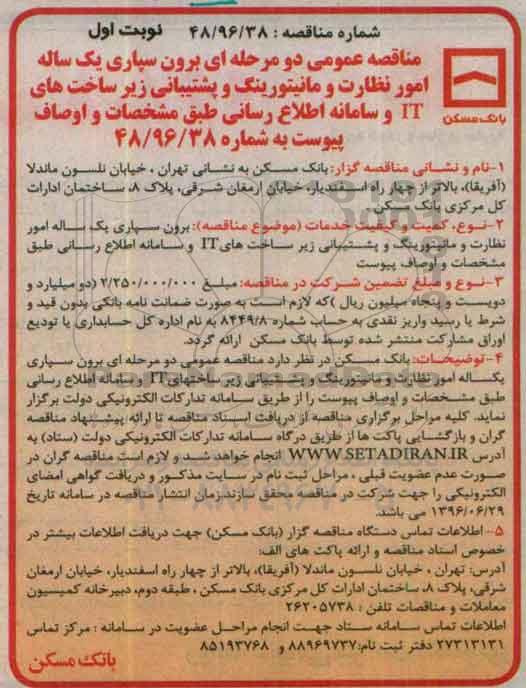 شماره مناقصه : ۴۸/۹۶/۳۸ نوبت اول
مناقصه عمومی دو مرحله ای برون سپاری یک ساله
امور نظارت و مانیتورینگ و پشتیبانی زیر ساخت های
IT و سامانه اطلاع رسانی طبق مشخصات و اوصاف
پیوست به شماره ۴۸/۹۶/۳۸
بانک مسکن
۱-نام و نشانی مناقصه گزار: بانک مسکن به نشانی تهران ، خیابان نلسون ماندلا
(آفریقا)، بالاتر از چهار راه اسفندیار، خیابان ارمغان شرقی، پلاک ۸، ساختمان ادارات
کل مرکزی بانک مسکن .
۲-نوع، کمیت و کیفیت خدمات (موضوع مناقصه): برون سپاری یک ساله امور
نظارت و مانیتورینگ و پشتیبانی زیر ساخت های IT و سامانه اطلاع رسانی طبق
مشخصات و اوصاف پیوست
۳-نوع و مبلغ تضمین شرکت در مناقصه: مبلغ ۲/۲۵۰/۰۰۰/۰۰۰ (دو میلیارد و
دویست و پنجاه میلیون ریال )که لازم است به صورت ضمانت نامه بانکی بدون قید و
شرط یا رسید واریز نقدی به حساب شماره ۸۴۴۹/۸ به نام اداره کل حسابداری یا تودیع
اوراق مشارکت منتشر شده توسط بانک مسکن ارائه گردد.
۴-توضیحات: بانک مسکن در نظر دارد مناقصه عمومی دو مرحله ای برون سپاری
یکساله امور نظارت و مانیتورینگ و پشتیبانی زیر ساختهای IT و سامانه اطلاع رسانی
طبق مشخصات و اوصاف پیوست را از طریق سامانه تدارکات الکترونیکی دولت برگزار
نماید. کلیه مراحل برگزاری مناقصه از دریافت اسناد مناقصه تا ارائه پیشنهاد مناقصه
گران و بازگشایی پاکت ها از طریق درگاه سامانه تدارکات الکترونیکی دولت (ستاد) به
آدرس WWW.SETADIRAN.IR انجام خواهد شد و لازم است مناقصه گران در
صورت عدم عضویت قبلی ، مراحل ثبت نام در سایت مذکور و دریافت گواهی امضای
الکترونیکی را جهت شرکت در مناقصه محقق سازند.زمان انتشار مناقصه در سامانه تاریخ
۱۳۹۶/۰۶/۲۹ می باشد.
۵- اطلاعات تماس دستگاه مناقصه گزار (بانک مسکن) جهت دریافت اطلاعات بیشتر در
خصوص اسناد مناقصه و ارائه پاکت های الف:
آدرس: تهران ، خیابان نلسون ماندلا (آفریقا)، بالاتر از چهار راه اسفندیار، خیابان ارمغان
شرقی، پلاک ۸، ساختمان ادارات کل مرکزی بانک مسکن ، طبقه دوم، دبیرخانه کمیسیون
معاملات و مناقصات تلفن : ۲۶۲۰۵۷۳۸
اطلاعات تماس سامانه ستاد جهت انجام مراحل عضویت در سامانه : مرکز تماس
۲۷۳۱۳۱۳۱ دفتر ثبت نام: ۸۸۹۶۹۷۳۷ و ۸۵۱۹۳۷۶۸
بانک مسکن